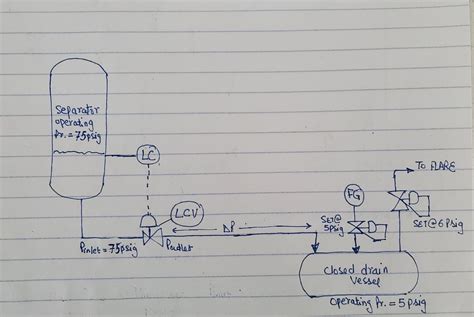 Separator
operating
Pr. = 75psig
LC
LCV
Pinlet = 75psig
Poutlet
ΔP
FG
SET@
5psig
To FLARE
SET@6psig
Closed drain
Vessel
Operating Pr. = 5psig